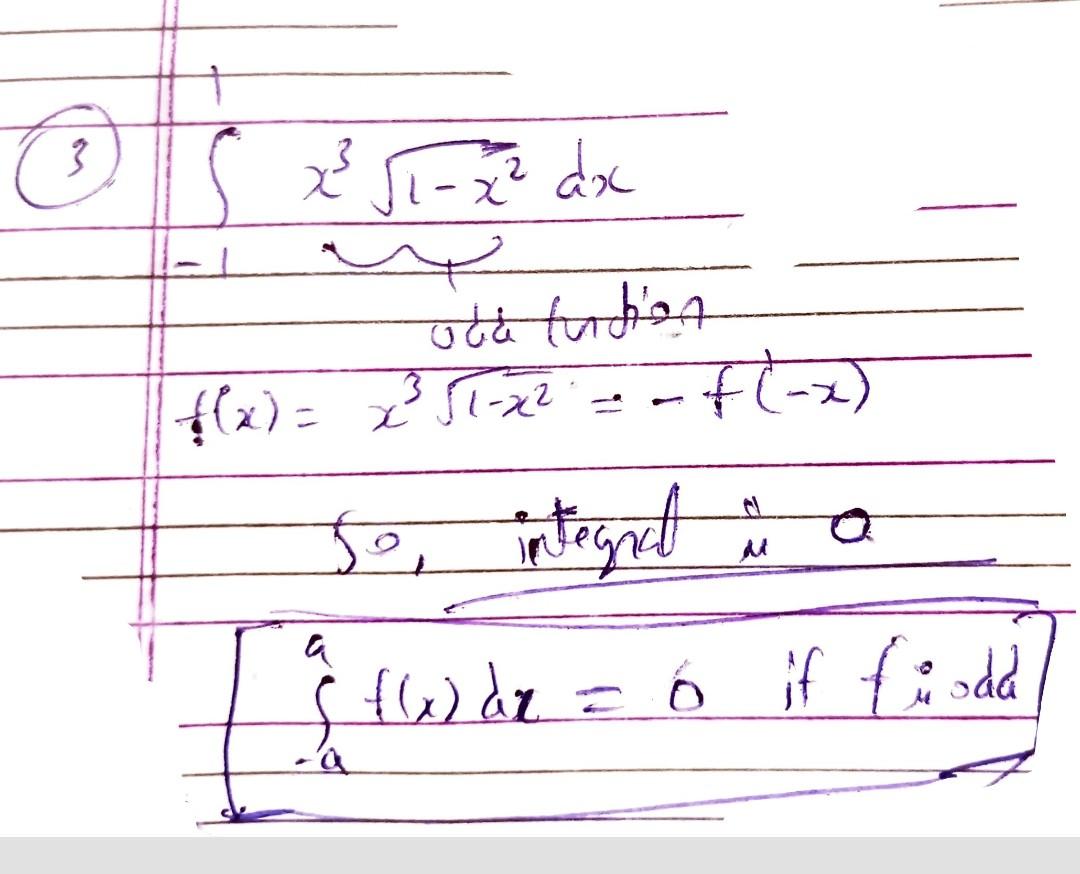 3 ∫_{-1}^{1} x³ √(1-x²) dx
odd function
f(x) = x³ √(1-x²) = - f(-x)
So, integral is 0
∫_{-a}^{a} f(x) dx = 0 if f is odd